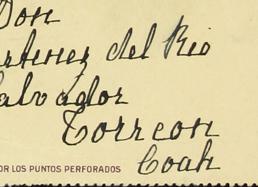 Don
artinez del Rio
alvador
Torreon
OR LOS PUNTOS PERFORADOS
Coah